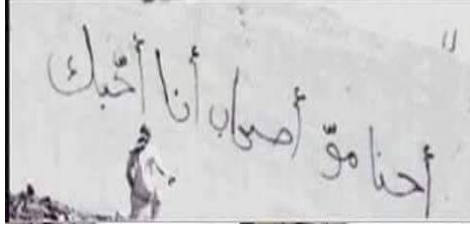 " أحنا موّ أصحاب أنا أحّبك